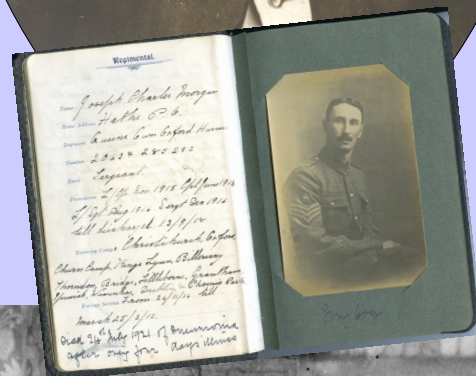 Regimental.
Name Joseph Charles Morgan
Home Address Hethe P.O.
Regiment Queens Own Oxford
Number 20434 285292
Rank Sergeant
Promotions L/Cpl Nov 1915 Cpl June 1916
L/Sgt Aug 1916 Sergt Dec 1916
till discharged
Training Camps Christchurch Oxford,
Churn Camp, Kings Lynn, Billericay
Thorndon, Bridge, Littleborne, Grantham,
Ipswich, Dublin &
Foreign Service From till
March
Died 26th July 1921 of Pneumonia
after only four days illness